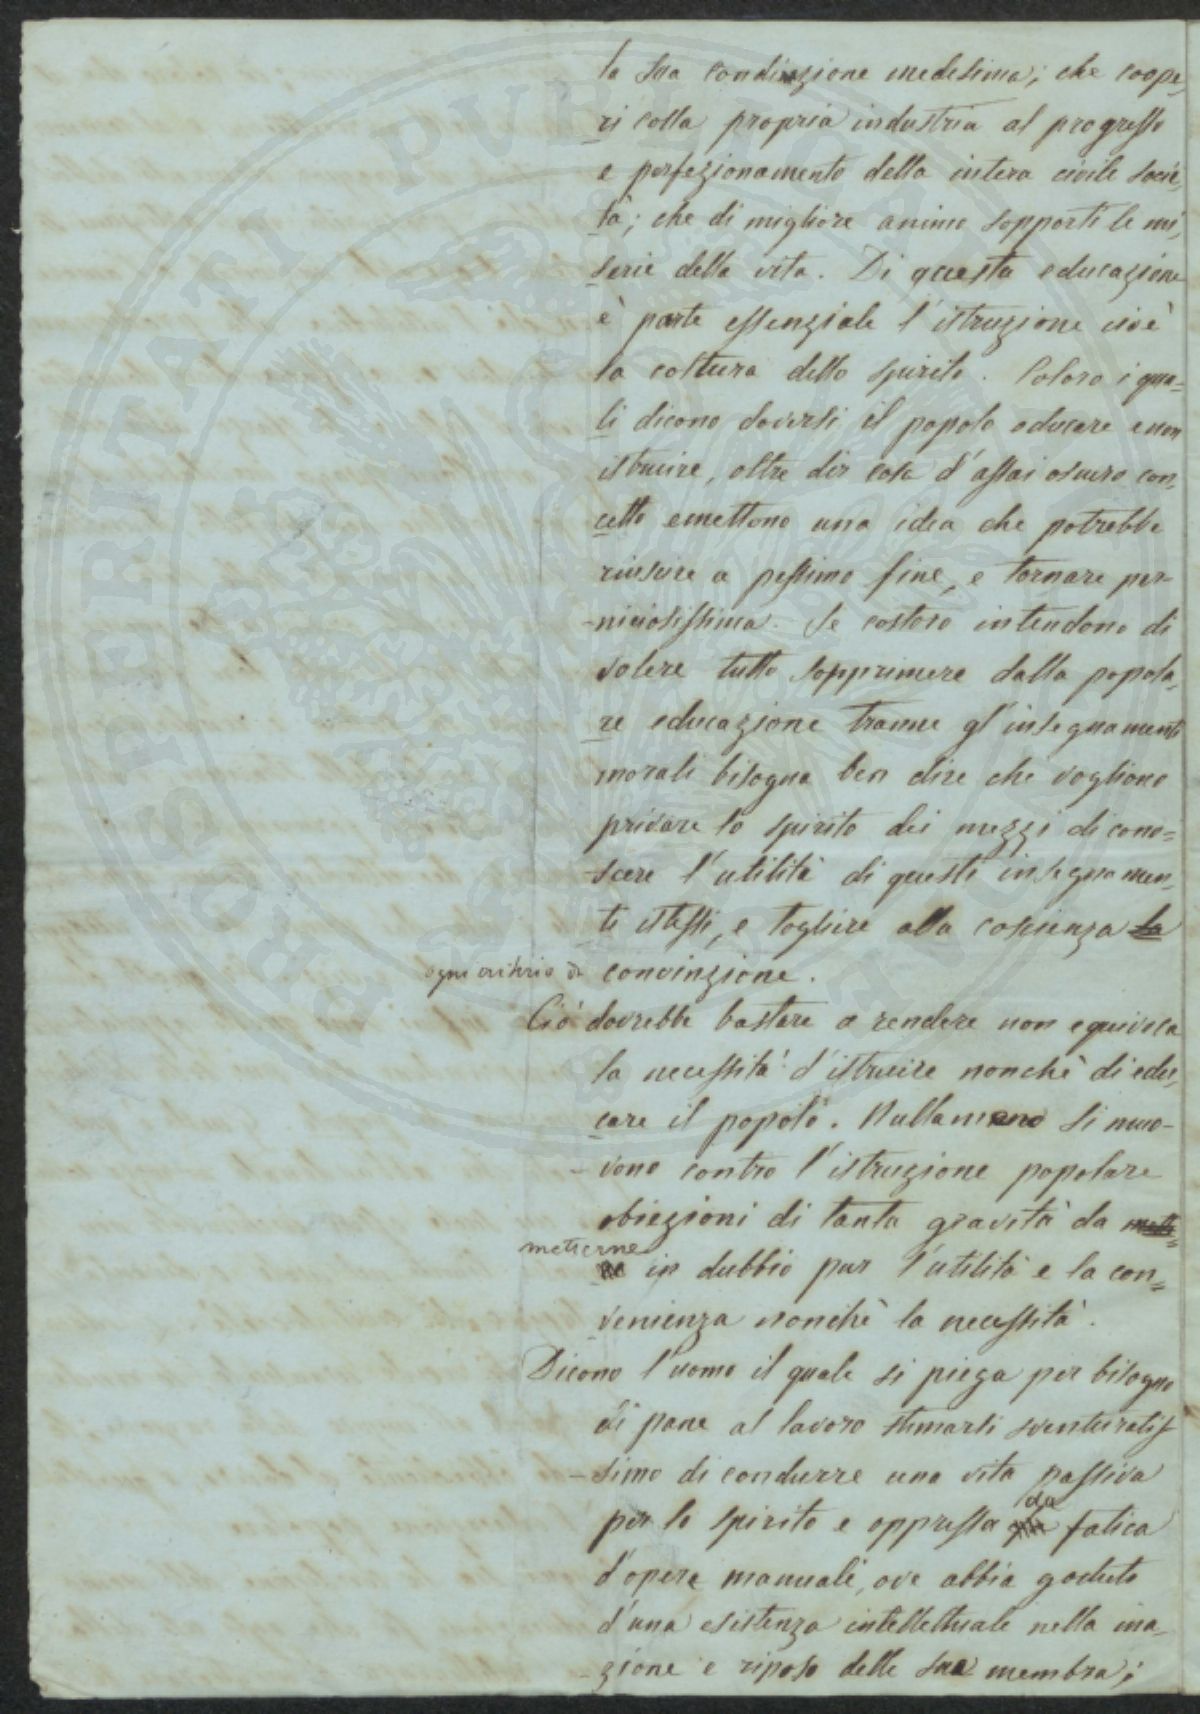 la sua condizione medesima; che coope-
ri colla propria industria al progresso
e perfezionamento della intera civile socie-
tà; che di migliore animo sopporti le mi-
serie della vita. Di questa educazione
è parte essenziale l'istruzione cioè
la coltura dello spirito. Coloro i qua-
li dicono doversi il popolo educare e non
istruire, oltre dir cosa d'assai oscuro con-
cetto emettono una idea che potrebbe
riuscire a pessimo fine, e tornare per-
niciosissima. Se costoro intendono di
volere tutto sopprimere dalla popola-
re educazione tranne gl'insegnamenti
morali bisogna ben dire che vogliono
privare lo spirito dei mezzi di cono-
scere l'utilità di questi insegnamen-
ti istessi, e togliere alla coscienza la
ogni criterio di convinzione.
Ciò dovrebbe bastare a rendere non equivoca
la necessità d'istruire nonchè di edu-
care il popolo. Nullameno si muo-
vono contro l'istruzione popolare
obiezioni di tanta gravità da mette-
metterne
re in dubbio pur l'utilità e la con-
venienza nonchè la necessità.
Dicono l'uomo il quale si piega per bisogno
di pane al lavoro stimarsi sventuratis-
simo di condurre una vita passiva
per lo spirito e oppressa da fatica
d'opere manuali, ove abbia goduto
d'una esistenza intellettuale nella ina-
zione e riposo delle sue membra;
PROSPERITATI PUBLICAE